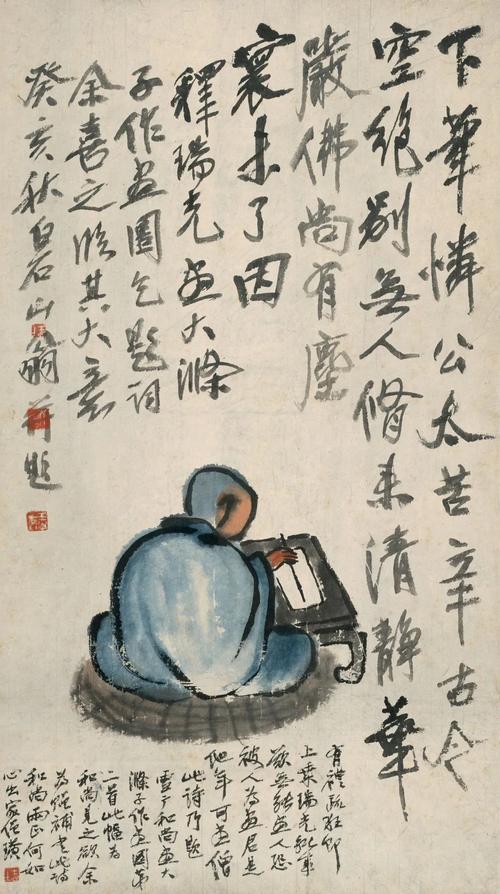 下筆憐公太苦辛古今
空絕別無人脩来清靜華
嚴佛尚有塵
寰未了因
釋瑞光画大滌
子作畫圖乞題詞
余喜之臨其大意
癸亥秋白石山翁并題
有禮疏狂即
上乘瑞光能事
欲無能画人恐
被人為画君是
他年可画僧
此詩乃題
雪广和尚画大
滌子作画圖第
二首此幅為
和尚見之欲余
為補書此詩
和尚雨正何如
心出家僧璜